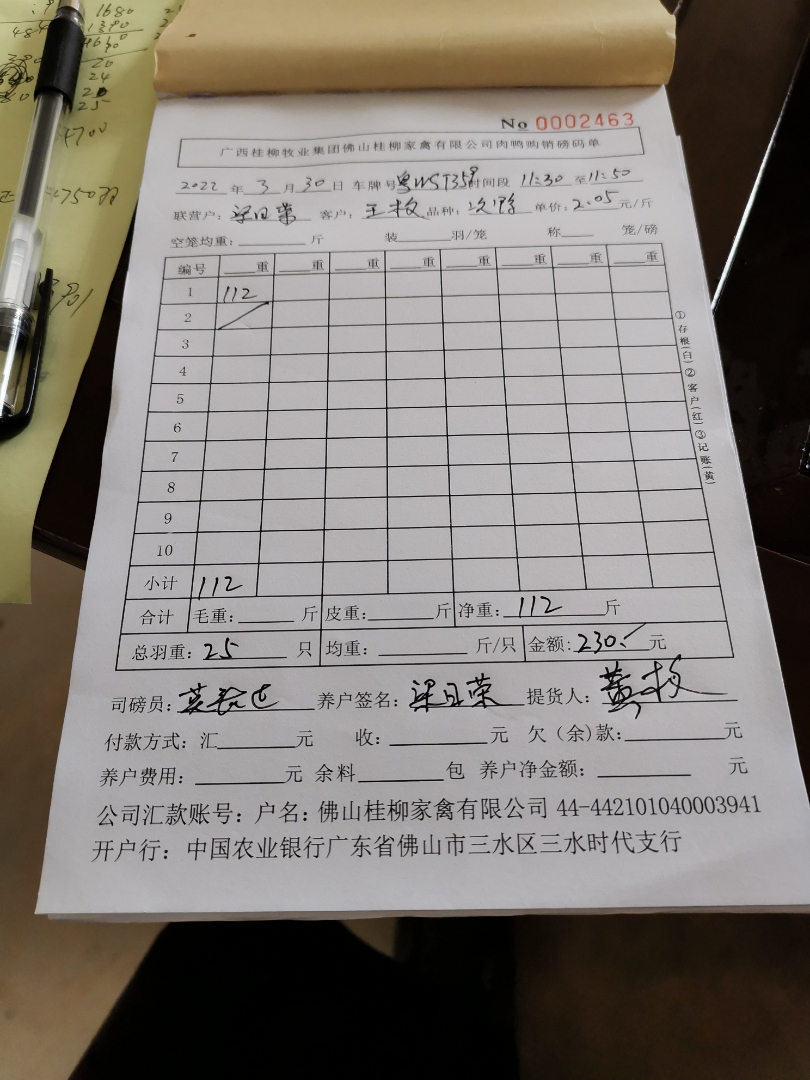 1680
No 0002463
广西桂柳牧业集团佛山桂柳家禽有限公司肉鸭购销磅码单
2022 年 3 月 30 日 车牌号 时间段 11:30 至 11:50
联营户：梁日荣 客户： 品种：次鸭 单价：2.05 元/斤
空笼均重： 斤 装 羽/笼 称 笼/磅
编号 重 重 重 重 重 重 重 重
1 112
2
3
4
5
6
7
8
9
10
小计 112
合计 毛重： 斤 皮重： 斤 净重：112 斤
总羽重：25 只 均重： 斤/只 金额：230. 元
司磅员： 养户签名：梁日荣 提货人：
付款方式：汇 元 收： 元 欠（余）款： 元
养户费用： 元 余料 包 养户净金额： 元
公司汇款账号：户名：佛山桂柳家禽有限公司 44-442101040003941
开户行：中国农业银行广东省佛山市三水区三水时代支行
①存根(白)②客户(红)③记账(黄)
24
25
4700